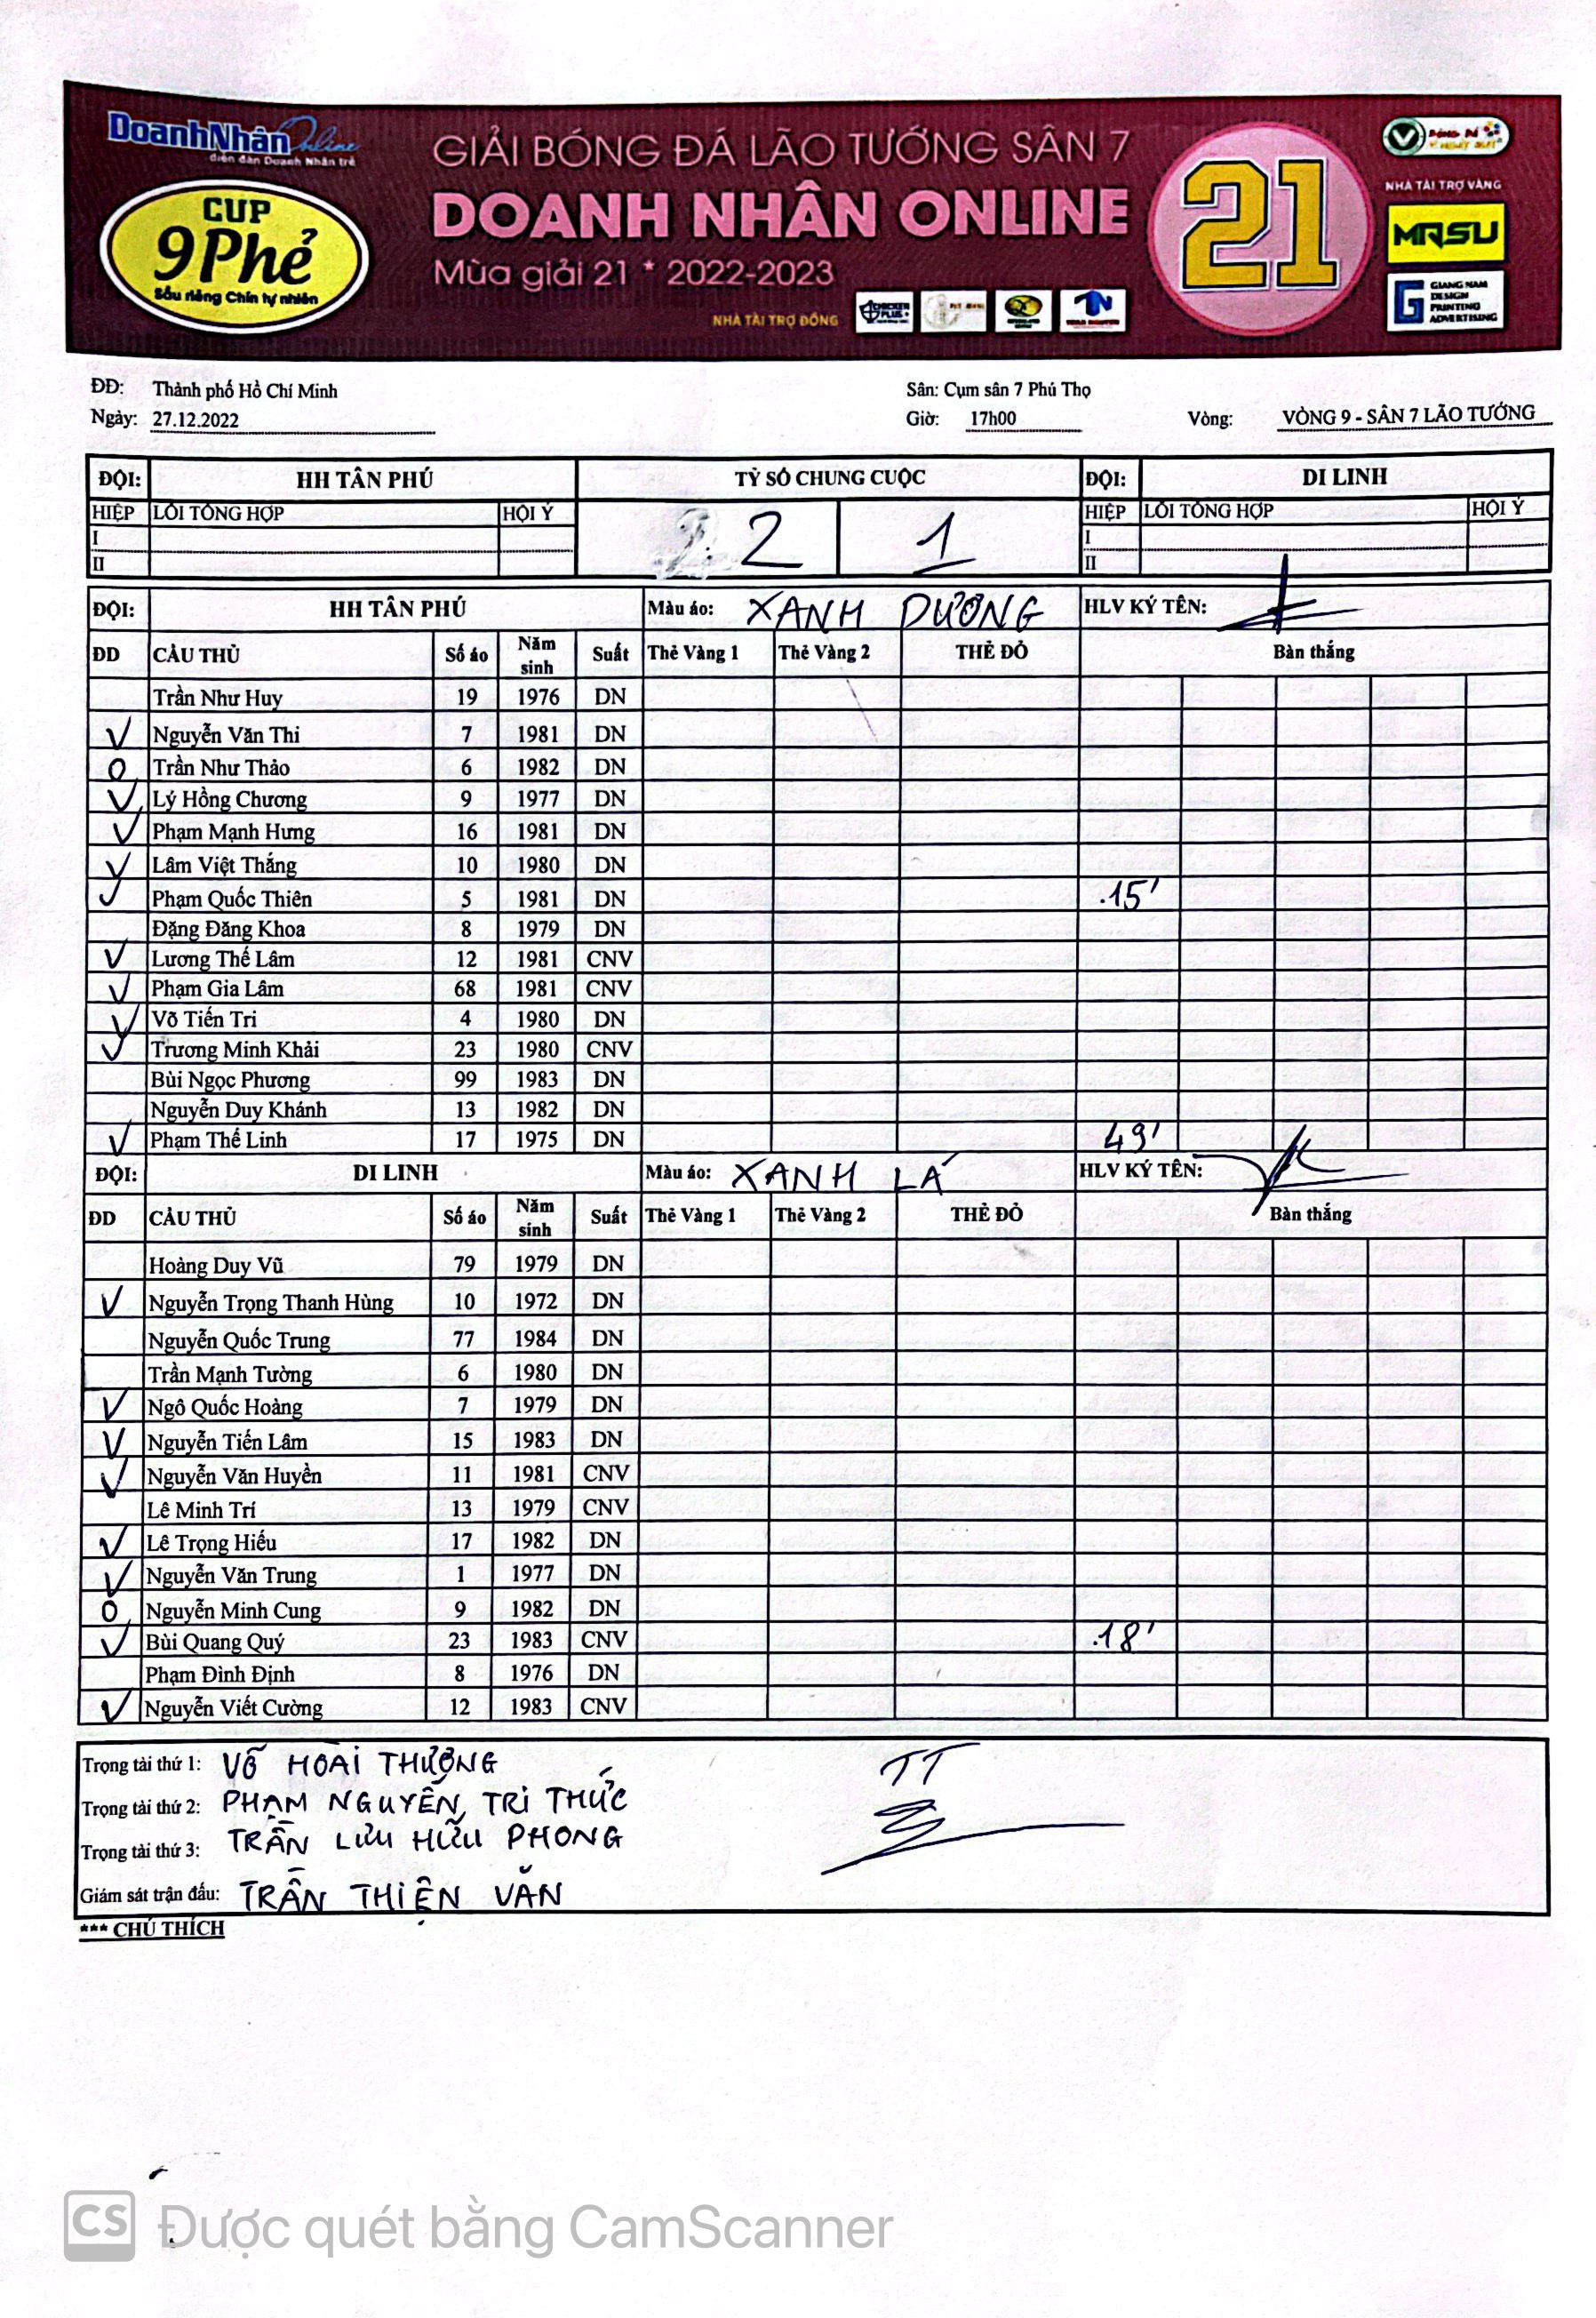 DoanhNhân Online
diễn đàn Doanh Nhân trẻ
CUP
9Phẻ
Sầu riêng Chín tự nhiên
GIẢI BÓNG ĐÁ LÃO TƯỚNG SÂN 7
DOANH NHÂN ONLINE
Mùa giải 21 * 2022-2023
NHÀ TÀI TRỢ ĐỒNG
CHICKEN PLUS
21
NHÀ TÀI TRỢ VÀNG
MRSU
GIANG NAM
DESIGN
PRINTING
ADVERTISING
ĐĐ: Thành phố Hồ Chí Minh Sân: Cụm sân 7 Phú Thọ
Ngày: 27.12.2022 Giờ: 17h00 Vòng: VÒNG 9 - SÂN 7 LÃO TƯỚNG
ĐỘI: HH TÂN PHÚ TỶ SỐ CHUNG CUỘC ĐỘI: DI LINH
HIỆP LỖI TỔNG HỢP HỘI Ý 2 1 HIỆP LỖI TỔNG HỢP HỘI Ý
I I
II II
ĐỘI: HH TÂN PHÚ Màu áo: XANH DƯƠNG HLV KÝ TÊN:
ĐD CẦU THỦ Số áo Năm sinh Suất Thẻ Vàng 1 Thẻ Vàng 2 THẺ ĐỎ Bàn thắng
Trần Như Huy 19 1976 DN
V Nguyễn Văn Thi 7 1981 DN
O Trần Như Thảo 6 1982 DN
V Lý Hồng Chương 9 1977 DN
V Phạm Mạnh Hưng 16 1981 DN
V Lâm Việt Thắng 10 1980 DN
V Phạm Quốc Thiên 5 1981 DN 15'
Đặng Đăng Khoa 8 1979 DN
V Lương Thế Lâm 12 1981 CNV
V Phạm Gia Lâm 68 1981 CNV
V Võ Tiến Tri 4 1980 DN
V Trương Minh Khải 23 1980 CNV
Bùi Ngọc Phương 99 1983 DN
Nguyễn Duy Khánh 13 1982 DN
V Phạm Thế Linh 17 1975 DN 49'
ĐỘI: DI LINH Màu áo: XANH LÁ HLV KÝ TÊN:
ĐD CẦU THỦ Số áo Năm sinh Suất Thẻ Vàng 1 Thẻ Vàng 2 THẺ ĐỎ Bàn thắng
Hoàng Duy Vũ 79 1979 DN
V Nguyễn Trọng Thanh Hùng 10 1972 DN
Nguyễn Quốc Trung 77 1984 DN
Trần Mạnh Tường 6 1980 DN
V Ngô Quốc Hoàng 7 1979 DN
V Nguyễn Tiến Lâm 15 1983 DN
V Nguyễn Văn Huyền 11 1981 CNV
Lê Minh Trí 13 1979 CNV
V Lê Trọng Hiếu 17 1982 DN
V Nguyễn Văn Trung 1 1977 DN
O Nguyễn Minh Cung 9 1982 DN
V Bùi Quang Quý 23 1983 CNV 18'
Phạm Đình Định 8 1976 DN
V Nguyễn Viết Cường 12 1983 CNV
Trọng tài thứ 1: VÕ HOÀI THƯƠNG TT
Trọng tài thứ 2: PHẠM NGUYỄN TRI THỨC
Trọng tài thứ 3: TRẦN LƯU HỮU PHONG
Giám sát trận đấu: TRẦN THIỆN VĂN
*** CHÚ THÍCH
CS Được quét bằng CamScanner